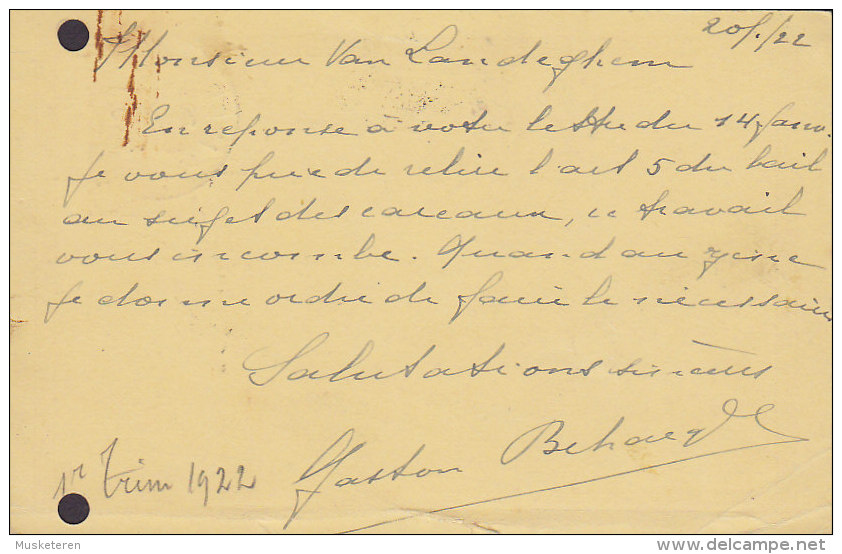 20/1/22
Monsieur Van Landeghem
En réponse à votre lettre du 14 Janv.
Je vous prie de relire l'art 5 du bail
au sujet des careaux, ce travail
vous incombe. Quand au zinc
je donne ordre de faire le nécessaire
Salutations sincères
Gaston
1r Trim 1922
Musketeren
delcampe.net